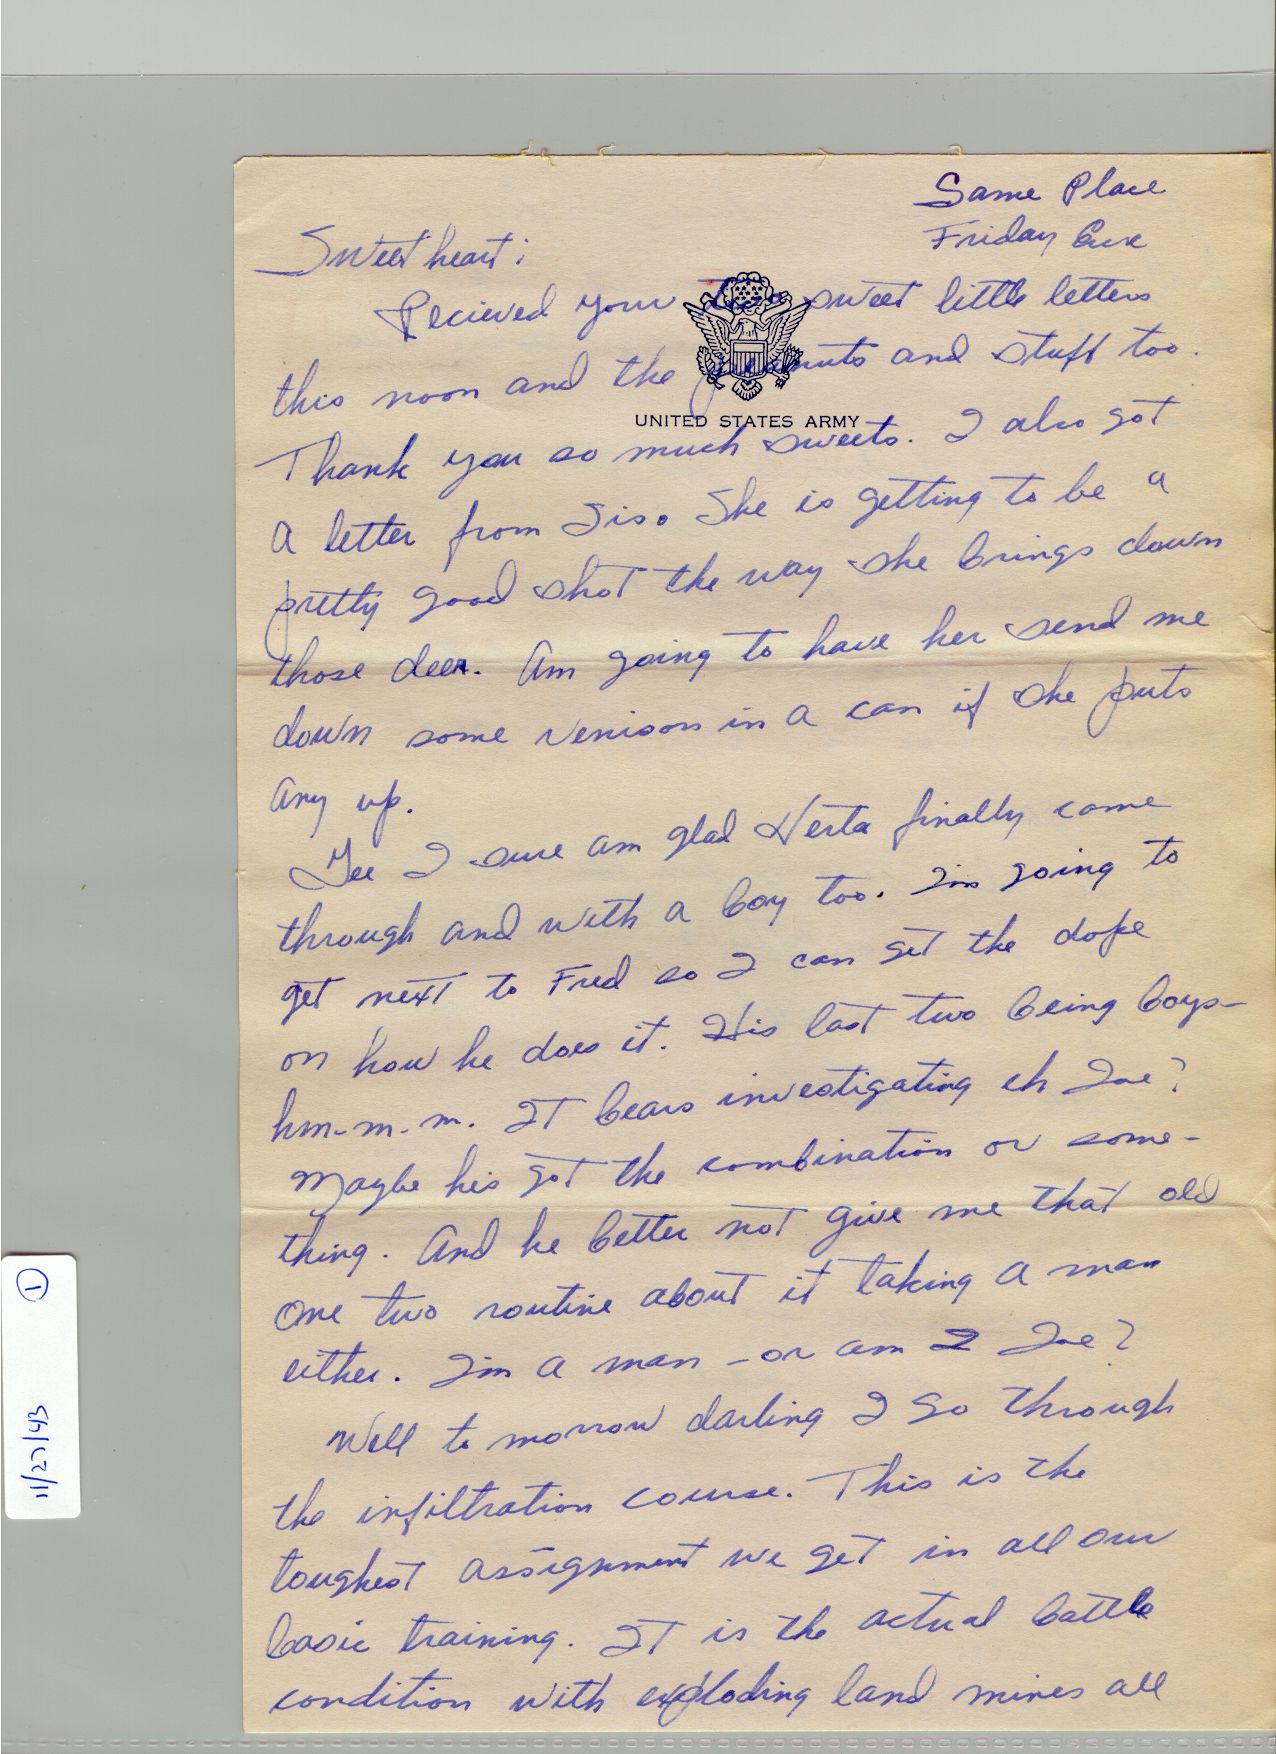 Same Place
Friday Eve
Sweetheart:
Recieved your two sweet little letters
this noon and the peanuts and stuff too.
UNITED STATES ARMY
Thank you so much sweets. I also got
a letter from Sis. She is getting to be a
pretty good shot the way she brings down
those deer. Am going to have her send me
down some venison in a can if she puts
any up.
Gee I sure am glad Verta finally came
through and with a boy too. Im going to
get next to Fred so I can get the dope
on how he does it. His last two being boys-
hm-m-m. It bears investigating eh Joe?
Maybe his got the combination or some-
thing. And he better not give me that old
one two routine about it taking a man
either. Im a man - or am I Joe?
Well to morrow darling I go through
the infiltration course. This is the
toughest assignment we get in all our
basic training. It is the actual battle
condition with exploding land mines all
1
11/27/43